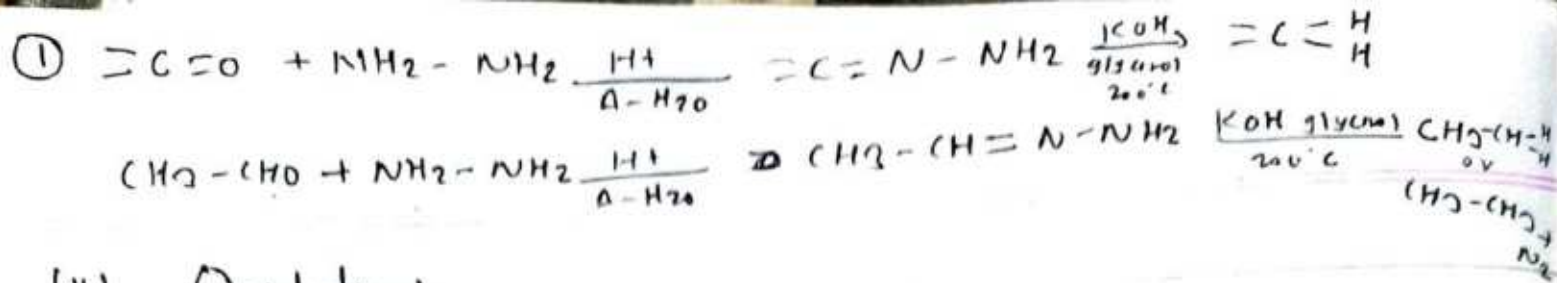 ① =C=O + NH2 - NH2 H+ Δ-H2O =C=N-NH2 KOH, glycerol 200°C =C=H H
CH3-CHO + NH2-NH2 H+ Δ-H2O CH3-CH=N-NH2 KOH glycerol 200°C CH3-CH-H H
or
CH3-CH3 +
N2